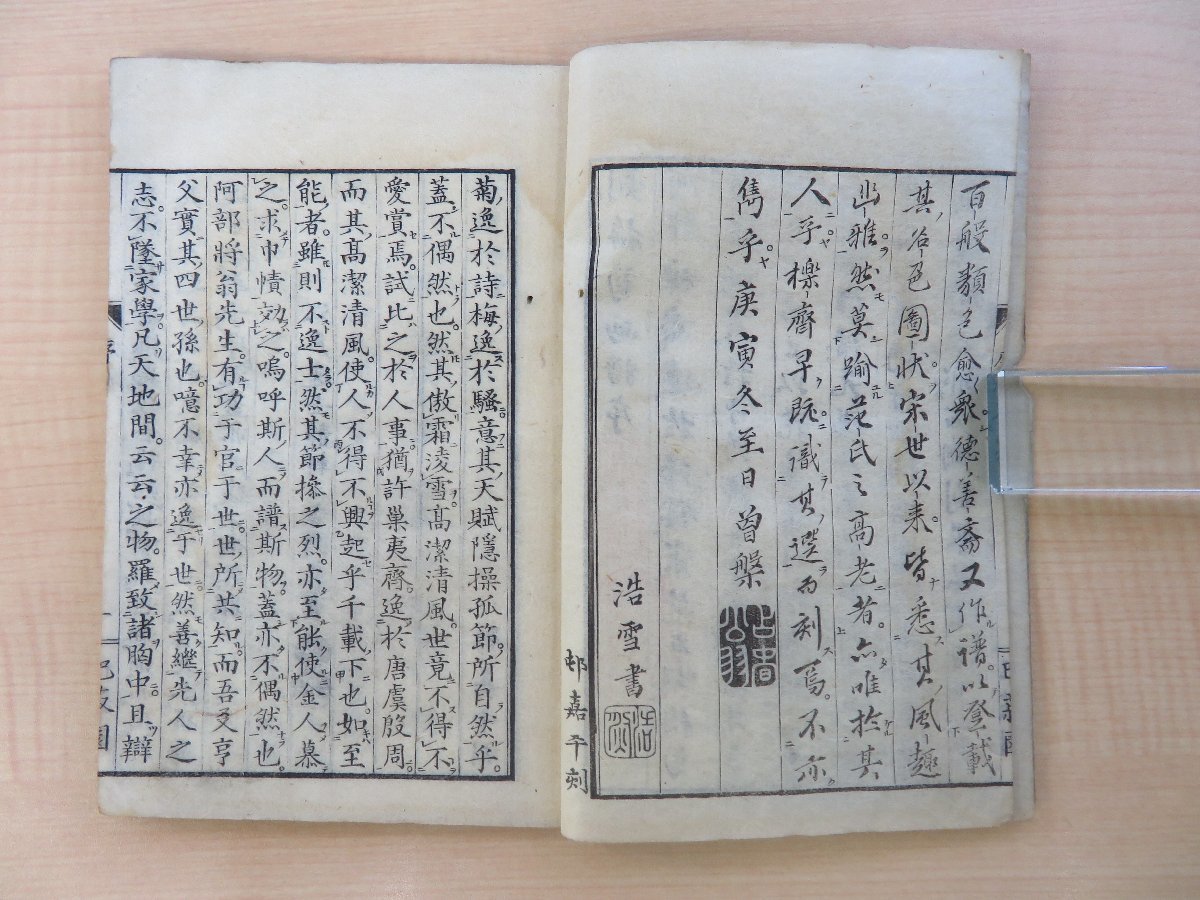 百般類色愈衆德善斎又作譜以登載
其名色圖状宋世以来皆悉其風趣
幽雅然莫踰范氏之高老者亦唯於其
人乎櫟齊早既識其選而刻焉不亦
雋乎庚寅冬至日曽槃
浩雪書
邨嘉平刻
菊逸於詩梅逸於騷意其天賦隱操孤節所自然乎
蓋不偶然也然其傲霜淩雪髙潔清風世竟不得不
愛賞焉試比之於人事猶許巢夷齊逸於唐虞殷周
而其髙潔清風使人不得不興起乎千載下也如至
能者雖則不逸士然其節操之烈亦至能使金人慕
之求巾幘効之嗚呼斯人而譜斯物蓋亦不偶然也
阿部將翁先生有功于官于世世所共知而吾友亨
父實其四世孫也噫不幸亦逸于世然善繼先人之
志不墜家學凡天地間云云之物羅致諸胸中且辯